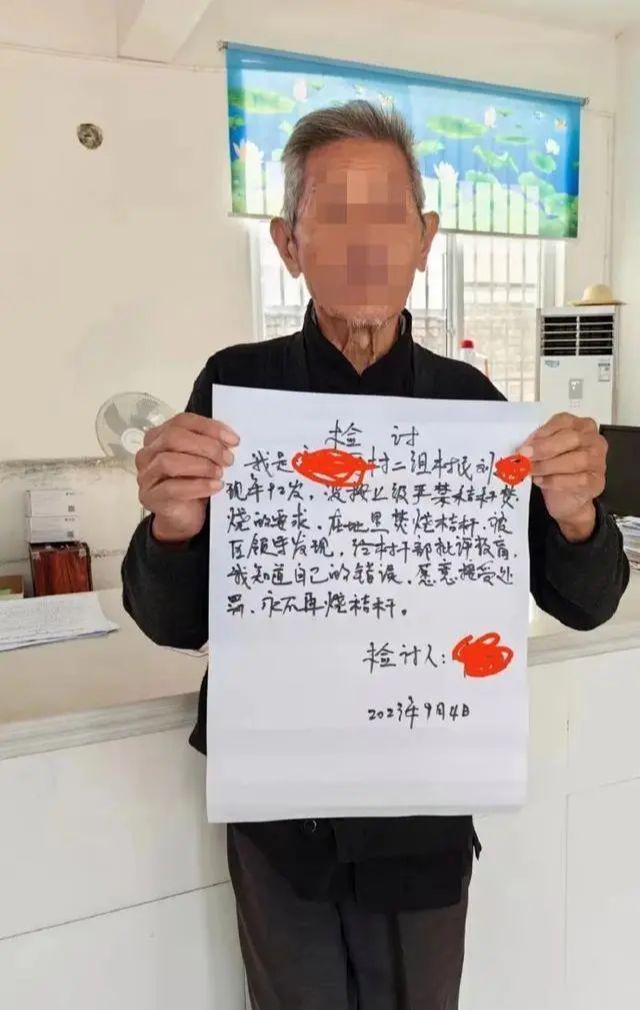 检 讨
我是村二组村民刘
现年92岁，没按上级严禁桔杆焚
烧的要求，在地里焚烧桔杆，被
区领导发现，给村干部批评教育，
我知道自己的错误，愿意接受处
罚，永不再烧桔杆。
检讨人：
2023年9月4日